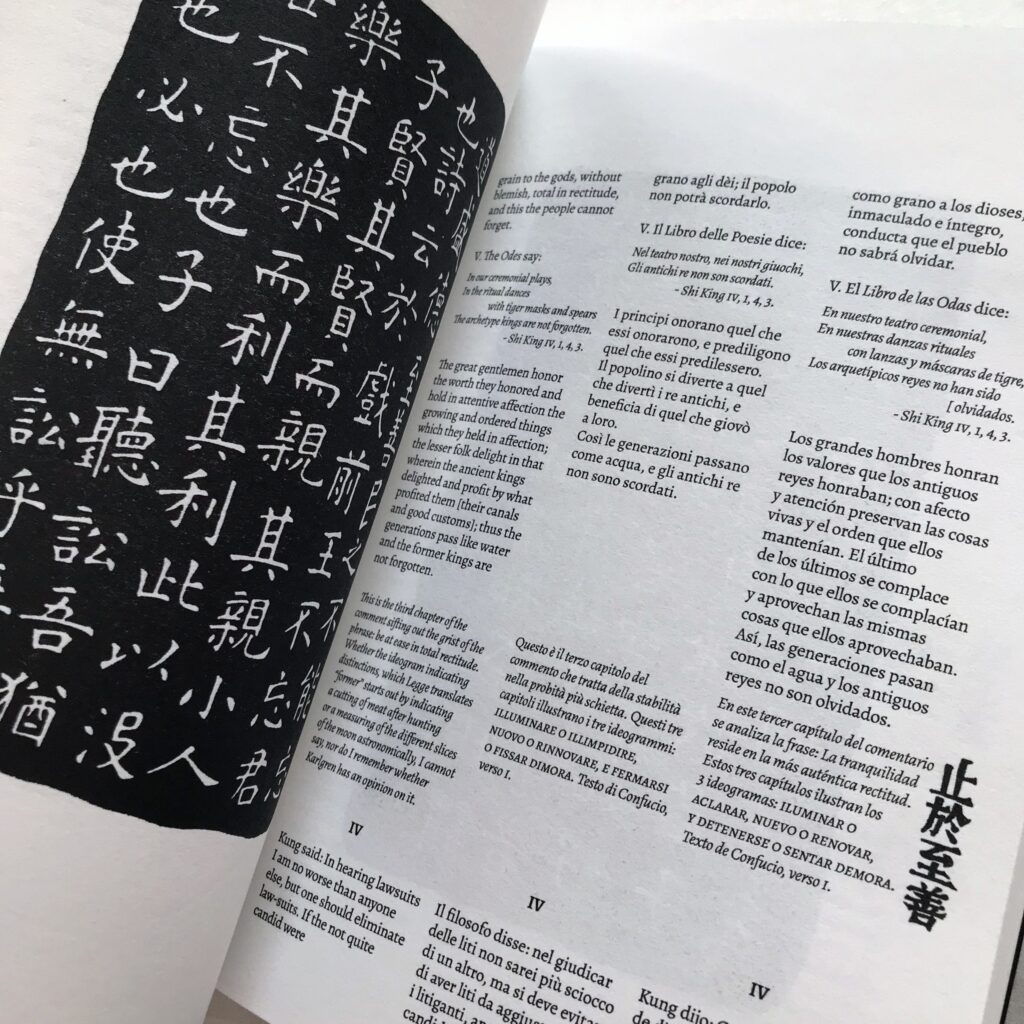 道盛德至善民之不能忘
也詩云於戲前王不忘君
子賢其賢而親其親小人
樂其樂而利其利此以沒
世不忘也子曰聽訟吾猶
也必也使無訟乎
grain to the gods, without
blemish, total in rectitude,
and this the people cannot
forget.
V. The Odes say:
In our ceremonial plays,
In the ritual dances
with tiger masks and spears
The archetype kings are not forgotten.
- Shi King IV, 1, 4, 3.
The great gentlemen honor
the worth they honored and
hold in attentive affection the
growing and ordered things
which they held in affection;
the lesser folk delight in that
wherein the ancient kings
delighted and profit by what
profited them [their canals
and good customs]; thus the
generations pass like water
and the former kings are
not forgotten.
This is the third chapter of the
comment sifting out the grist of the
phrase: be at ease in total rectitude.
Whether the ideogram indicating
distinctions, which Legge translates
"former" starts out by indicating
a cutting of meat after hunting
or a measuring of the different slices
of the moon astronomically, I cannot
say, nor do I remember whether
Karlgren has an opinion on it.
IV
Kung said: In hearing lawsuits
I am no worse than anyone
else, but one should eliminate
law-suits. If the not quite
candid were
grano agli dèi; il popolo
non potrà scordarlo.
V. Il Libro delle Poesie dice:
Nel teatro nostro, nei nostri giuochi,
Gli antichi re non son scordati.
- Shi King IV, 1, 4, 3.
I principi onorano quel che
essi onorarono, e prediligono
quel che essi predilessero.
Il popolino si diverte a quel
che divertì i re antichi, e
beneficia di quel che giovò
a loro.
Così le generazioni passano
come acqua, e gli antichi re
non sono scordati.
Questo è il terzo capitolo del
commento che tratta della stabilità
nella probità più schietta. Questi tre
capitoli illustrano i tre ideogrammi:
ILLUMINARE O ILLIMPIDIRE,
NUOVO O RINNOVARE, E FERMARSI
O FISSAR DIMORA. Testo di Confucio,
verso I.
IV
Il filosofo disse: nel giudicar
delle liti non sarei più sciocco
di un altro, ma si deve evitar
di aver liti da
i litiganti,
como grano a los dioses,
inmaculado e íntegro,
conducta que el pueblo
no sabrá olvidar.
V. El Libro de las Odas dice:
En nuestro teatro ceremonial,
En nuestras danzas rituales
con lanzas y máscaras de tigre,
Los arquetípicos reyes no han sido
[ olvidados.
- Shi King IV, 1, 4, 3.
Los grandes hombres honran
los valores que los antiguos
reyes honraban; con afecto
y atención preservan las cosas
vivas y el orden que ellos
mantenían. El último
de los últimos se complace
con lo que ellos se complacían
y aprovechan las mismas
cosas que ellos aprovechaban.
Así, las generaciones pasan
como el agua y los antiguos
reyes no son olvidados.
En este tercer capítulo del comentario
se analiza la frase: La tranquilidad
reside en la más auténtica rectitud.
Estos tres capítulos ilustran los
3 ideogramas: ILUMINAR O
ACLARAR, NUEVO O RENOVAR,
Y DETENERSE O SENTAR DEMORA.
Texto de Confucio, verso I.
止於至善
IV
Kung dijo: